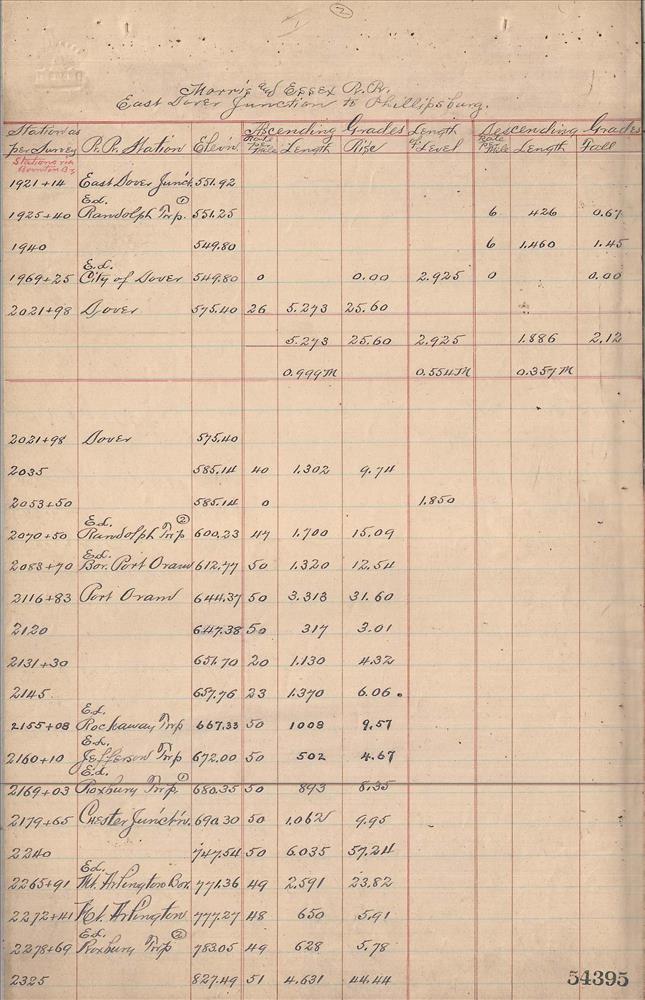 2
Morris and Essex R.R.
East Dover Junction to Phillipsburg.
Station as Ascending Grades Length Descending Grades
per Survey R.R. Station Elev'n Rate per Mile Length Rise of Level Rate per Mile Length Fall
Stations via Boonton Br.
1921+14 East Dover Junct. 551.92
Ed. 1
1925+40 Randolph Twp. 551.25 6 426 0.67
1940 549.80 6 1.460 1.45
Ed.
1969+25 City of Dover 549.80 0 0.00 2.925 0 0.00
2021+98 Dover 575.40 26 5.273 25.60
5.273 25.60 2.925 1.886 2.12
0.999M 0.554M 0.357M
2021+98 Dover 575.40
2035 585.14 40 1.302 9.74
2053+50 585.14 0 1.850
Ed. 2
2070+50 Randolph Twp 600.23 47 1.700 15.09
Ed.
2083+70 Bor. Port Oram 612.77 50 1.320 12.54
2116+83 Port Oram 644.37 50 3.313 31.60
2120 647.38 50 317 3.01
2131+30 651.70 20 1.130 4.32
2145 657.76 23 1.370 6.06
Ed.
2155+08 Rockaway Twp 667.33 50 1008 9.57
Ed.
2160+10 Jefferson Twp 672.00 50 502 4.67
Ed. 1
2169+03 Roxbury Twp. 680.35 50 893 8.35
2179+65 Chester Junct'n. 690.30 50 1.062 9.95
2240 747.54 50 6.035 57.24
Ed.
2265+91 Mt. Arlington Bor. 771.36 49 2.591 23.82
2272+41 Mt. Arlington 777.27 48 650 5.91
Ed. 2
2278+69 Roxbury Twp 783.05 49 628 5.78
2325 827.49 51 4.631 44.44
54395